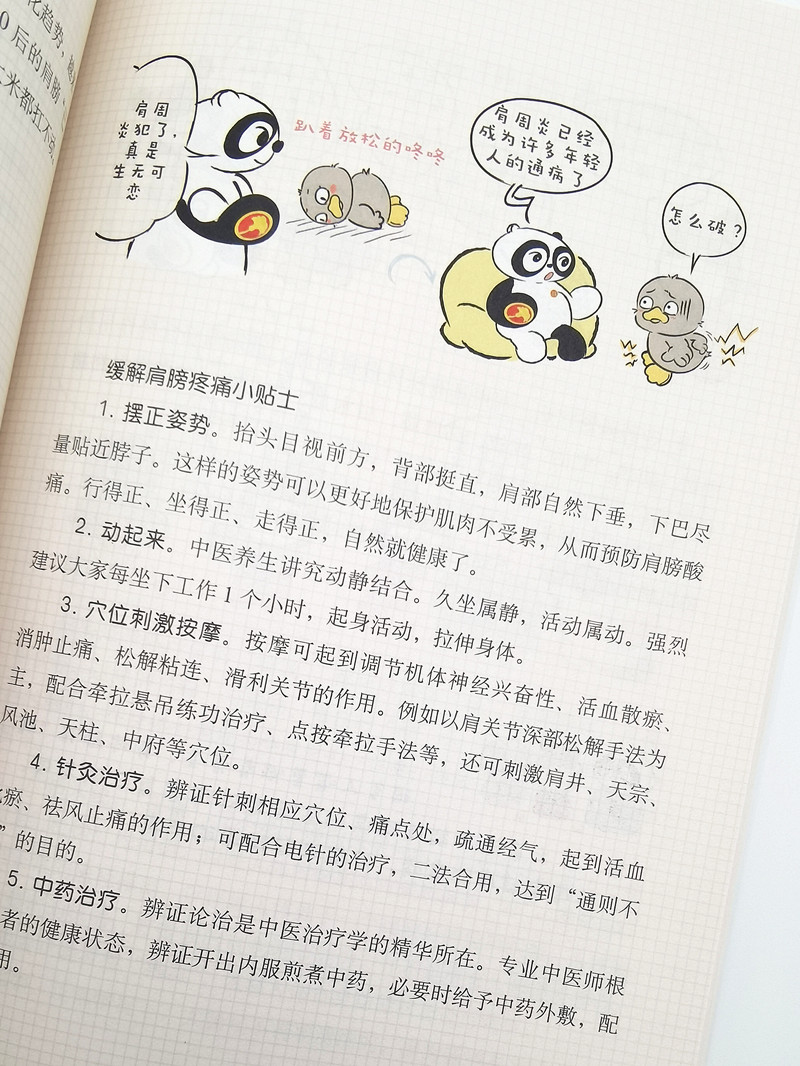 化趋势，
0 后的肩膀，
米都扛不
周了，是可
肩犯真无恋
炎 生
趴着放松的咚咚
肩周炎已经
成为许多年轻
人的通病了
怎么破？
缓解肩膀疼痛小贴士
1. 摆正姿势。抬头目视前方，背部挺直，肩部自然下垂，下巴尽
量贴近脖子。这样的姿势可以更好地保护肌肉不受累，从而预防肩膀酸
痛。行得正、坐得正、走得正，自然就健康了。
2. 动起来。中医养生讲究动静结合。久坐属静，活动属动。强烈
建议大家每坐下工作 1 个小时，起身活动，拉伸身体。
3. 穴位刺激按摩。按摩可起到调节机体神经兴奋性、活血散瘀、
消肿止痛、松解粘连、滑利关节的作用。例如以肩关节深部松解手法为
主，配合牵拉悬吊练功治疗、点按牵拉手法等，还可刺激肩井、天宗、
风池、天柱、中府等穴位。
4. 针灸治疗。辨证针刺相应穴位、痛点处，疏通经气，起到活血
瘀、祛风止痛的作用；可配合电针的治疗，二法合用，达到“通则不
”的目的。
5. 中药治疗。辨证论治是中医治疗学的精华所在。专业中医师根
者的健康状态，辨证开出内服煎煮中药，必要时给予中药外敷，配
用。